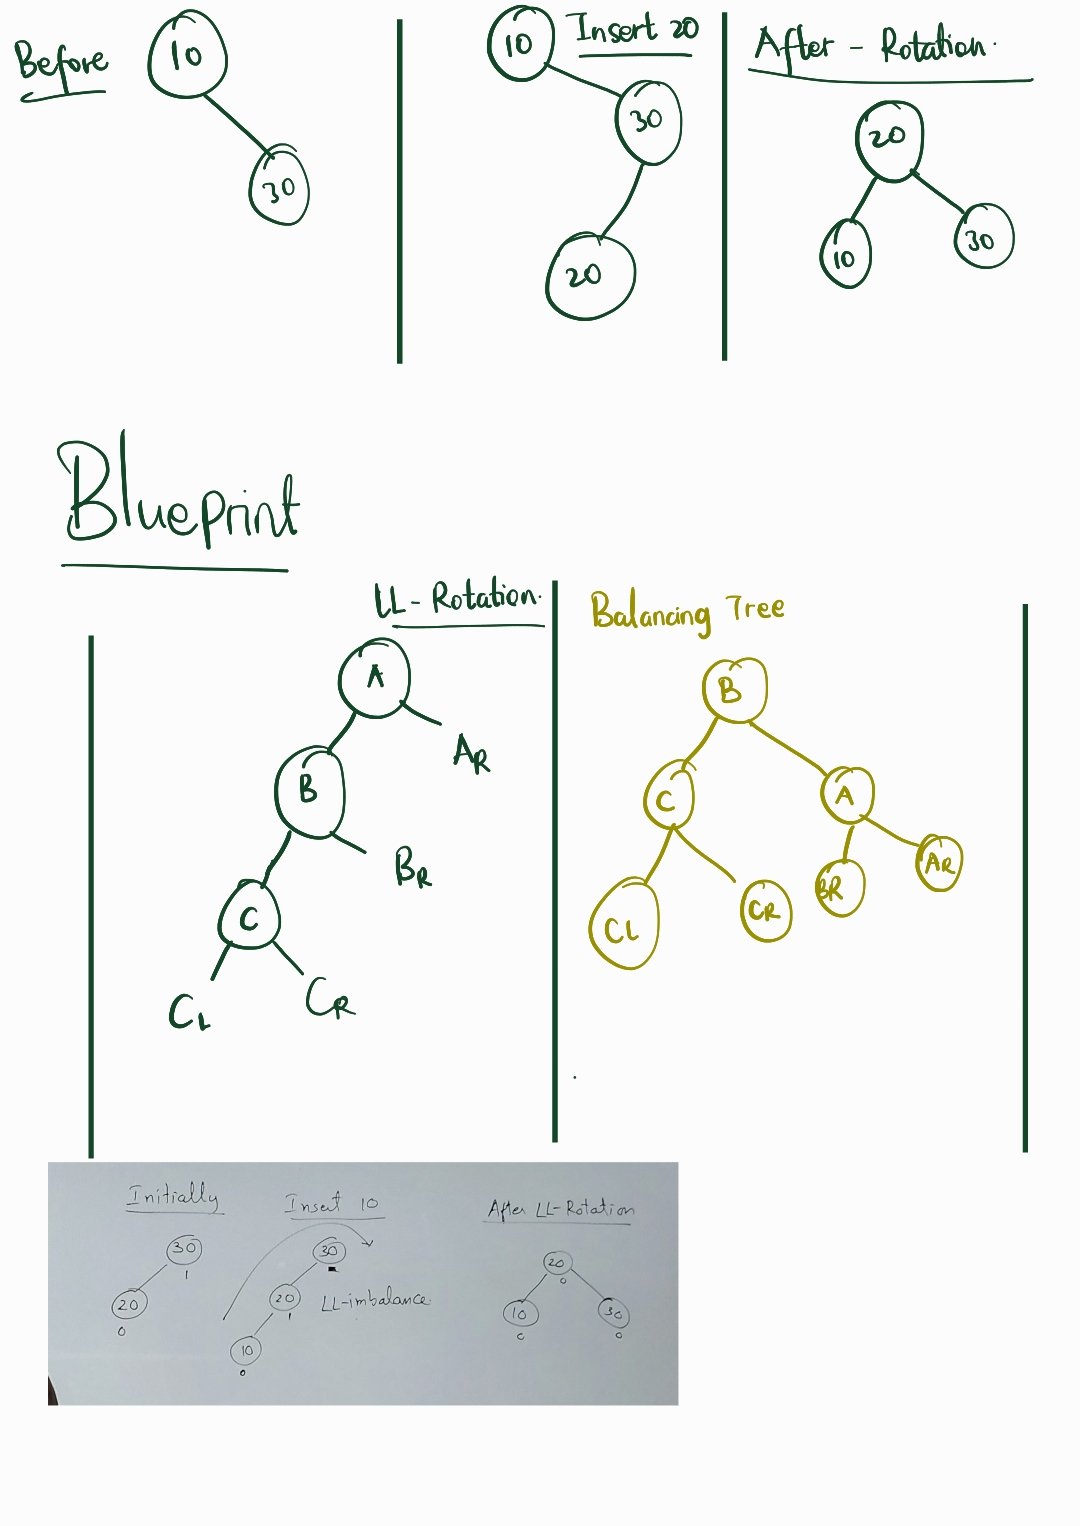 Before
10
30
Insert 20
10
30
20
After - Rotation.
20
10
30
Blueprint
LL - Rotation.
A
AR
B
BR
C
CL
CR
Balancing Tree
B
C
A
CL
CR
BR
AR
Initially
30
1
20
0
Insert 10
30
20
1
LL-imbalance
10
0
After LL-Rotation
20
0
10
0
30
0